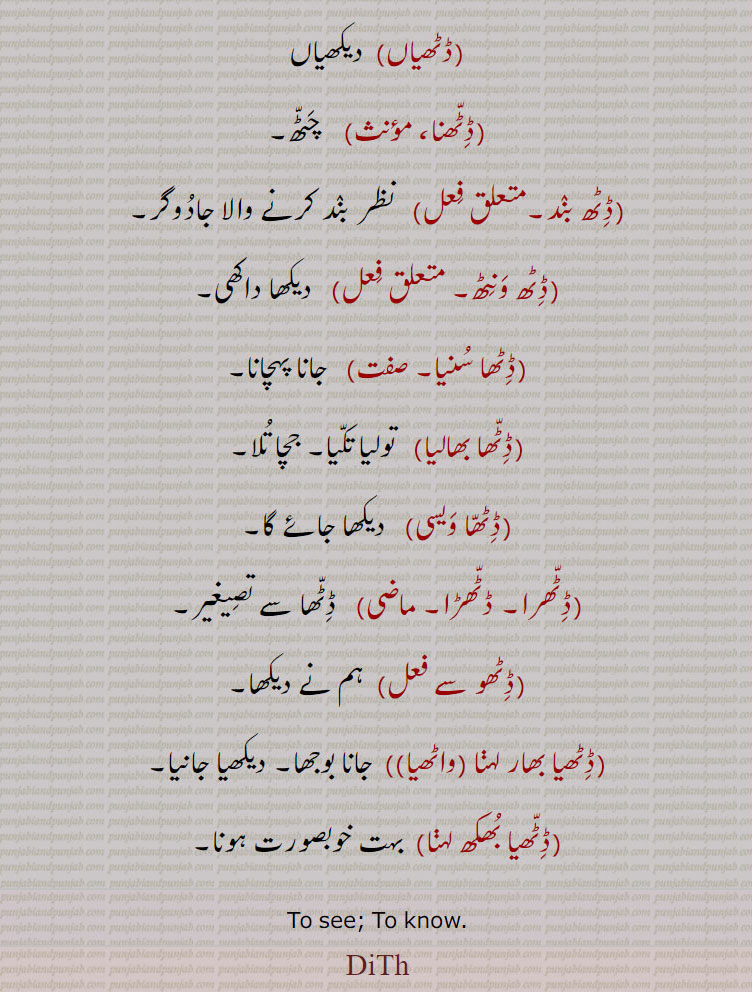 (ڈٹھیاں) دیکھیاں
(ڈِٹّھنا، مؤنث) چَٹّھ۔
(ڈِٹھ بنٛد۔ متعلق فِعل) نظر بنٛد کرنے والا جادُوگر۔
(ڈِٹھ وَنِٹھ۔ متعلق فِعل) دیکھا داکھی۔
(ڈِٹھا سُنیا۔ صفت) جانا پہچانا۔
(ڈِٹّھا بھالیا) تولیا تکّیا۔ جچا تُلا۔
(ڈِٹھّا وَیسی) دیکھا جائے گا۔
(ڈِٹّھرا۔ ڈٹّھڑا۔ ماضی) ڈِٹّھا سے تصِیغیر۔
(ڈِٹھو سے فعل) ہم نے دیکھا۔
(ڈِٹھیا بھار لہنٛا (واٹھیا)) جانا بوجھا۔ دیکھیا جانیا۔
(ڈِٹّھیا بُھکھ لہنٛا) بہت خوبصورت ہونا۔
To see; To know.
DiTh